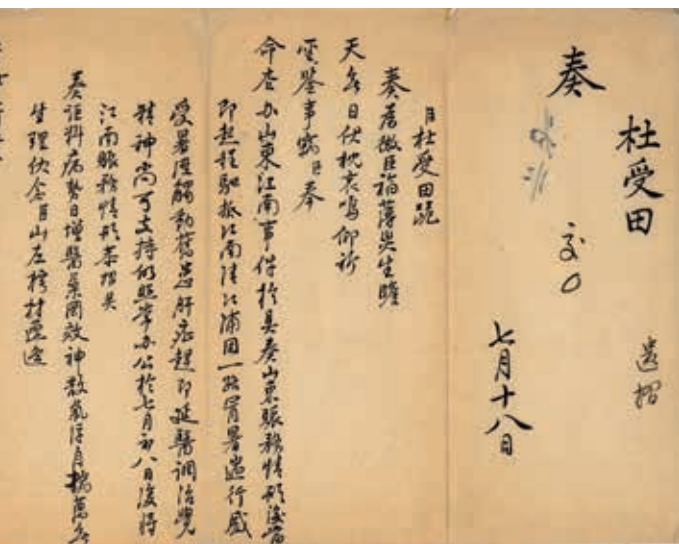 杜受田 遺摺
奏
七月十八日
臣杜受田跪
奏為微臣福薄災生瞻
天無日伏枕哀鳴仰祈
聖鑒事竊臣奉
命查办山東江南事件於具奏山東賑務情形後當
即起程馳抵江南清江浦因一路冒暑遄行感
受暑溼觸動舊患肝症趕即延醫調治覺
精神尚可支持仍照常办公於七月初八日復將
江南賑務情形恭摺具
奏詎料病勢日增醫藥罔效神散氣浮自揣萬無
生理伏念臣山左樗材遭逢